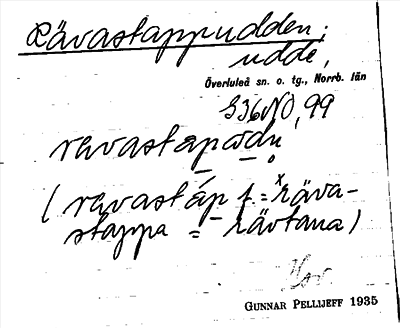 Rävastappudden;
udde,
Överluleå sn. o. tg., Norrb. län
S36NO, 99
revastapodn
(revastáp f. = *räva-
stappa = rävtana)
GUNNAR PELLIJEFF 1935